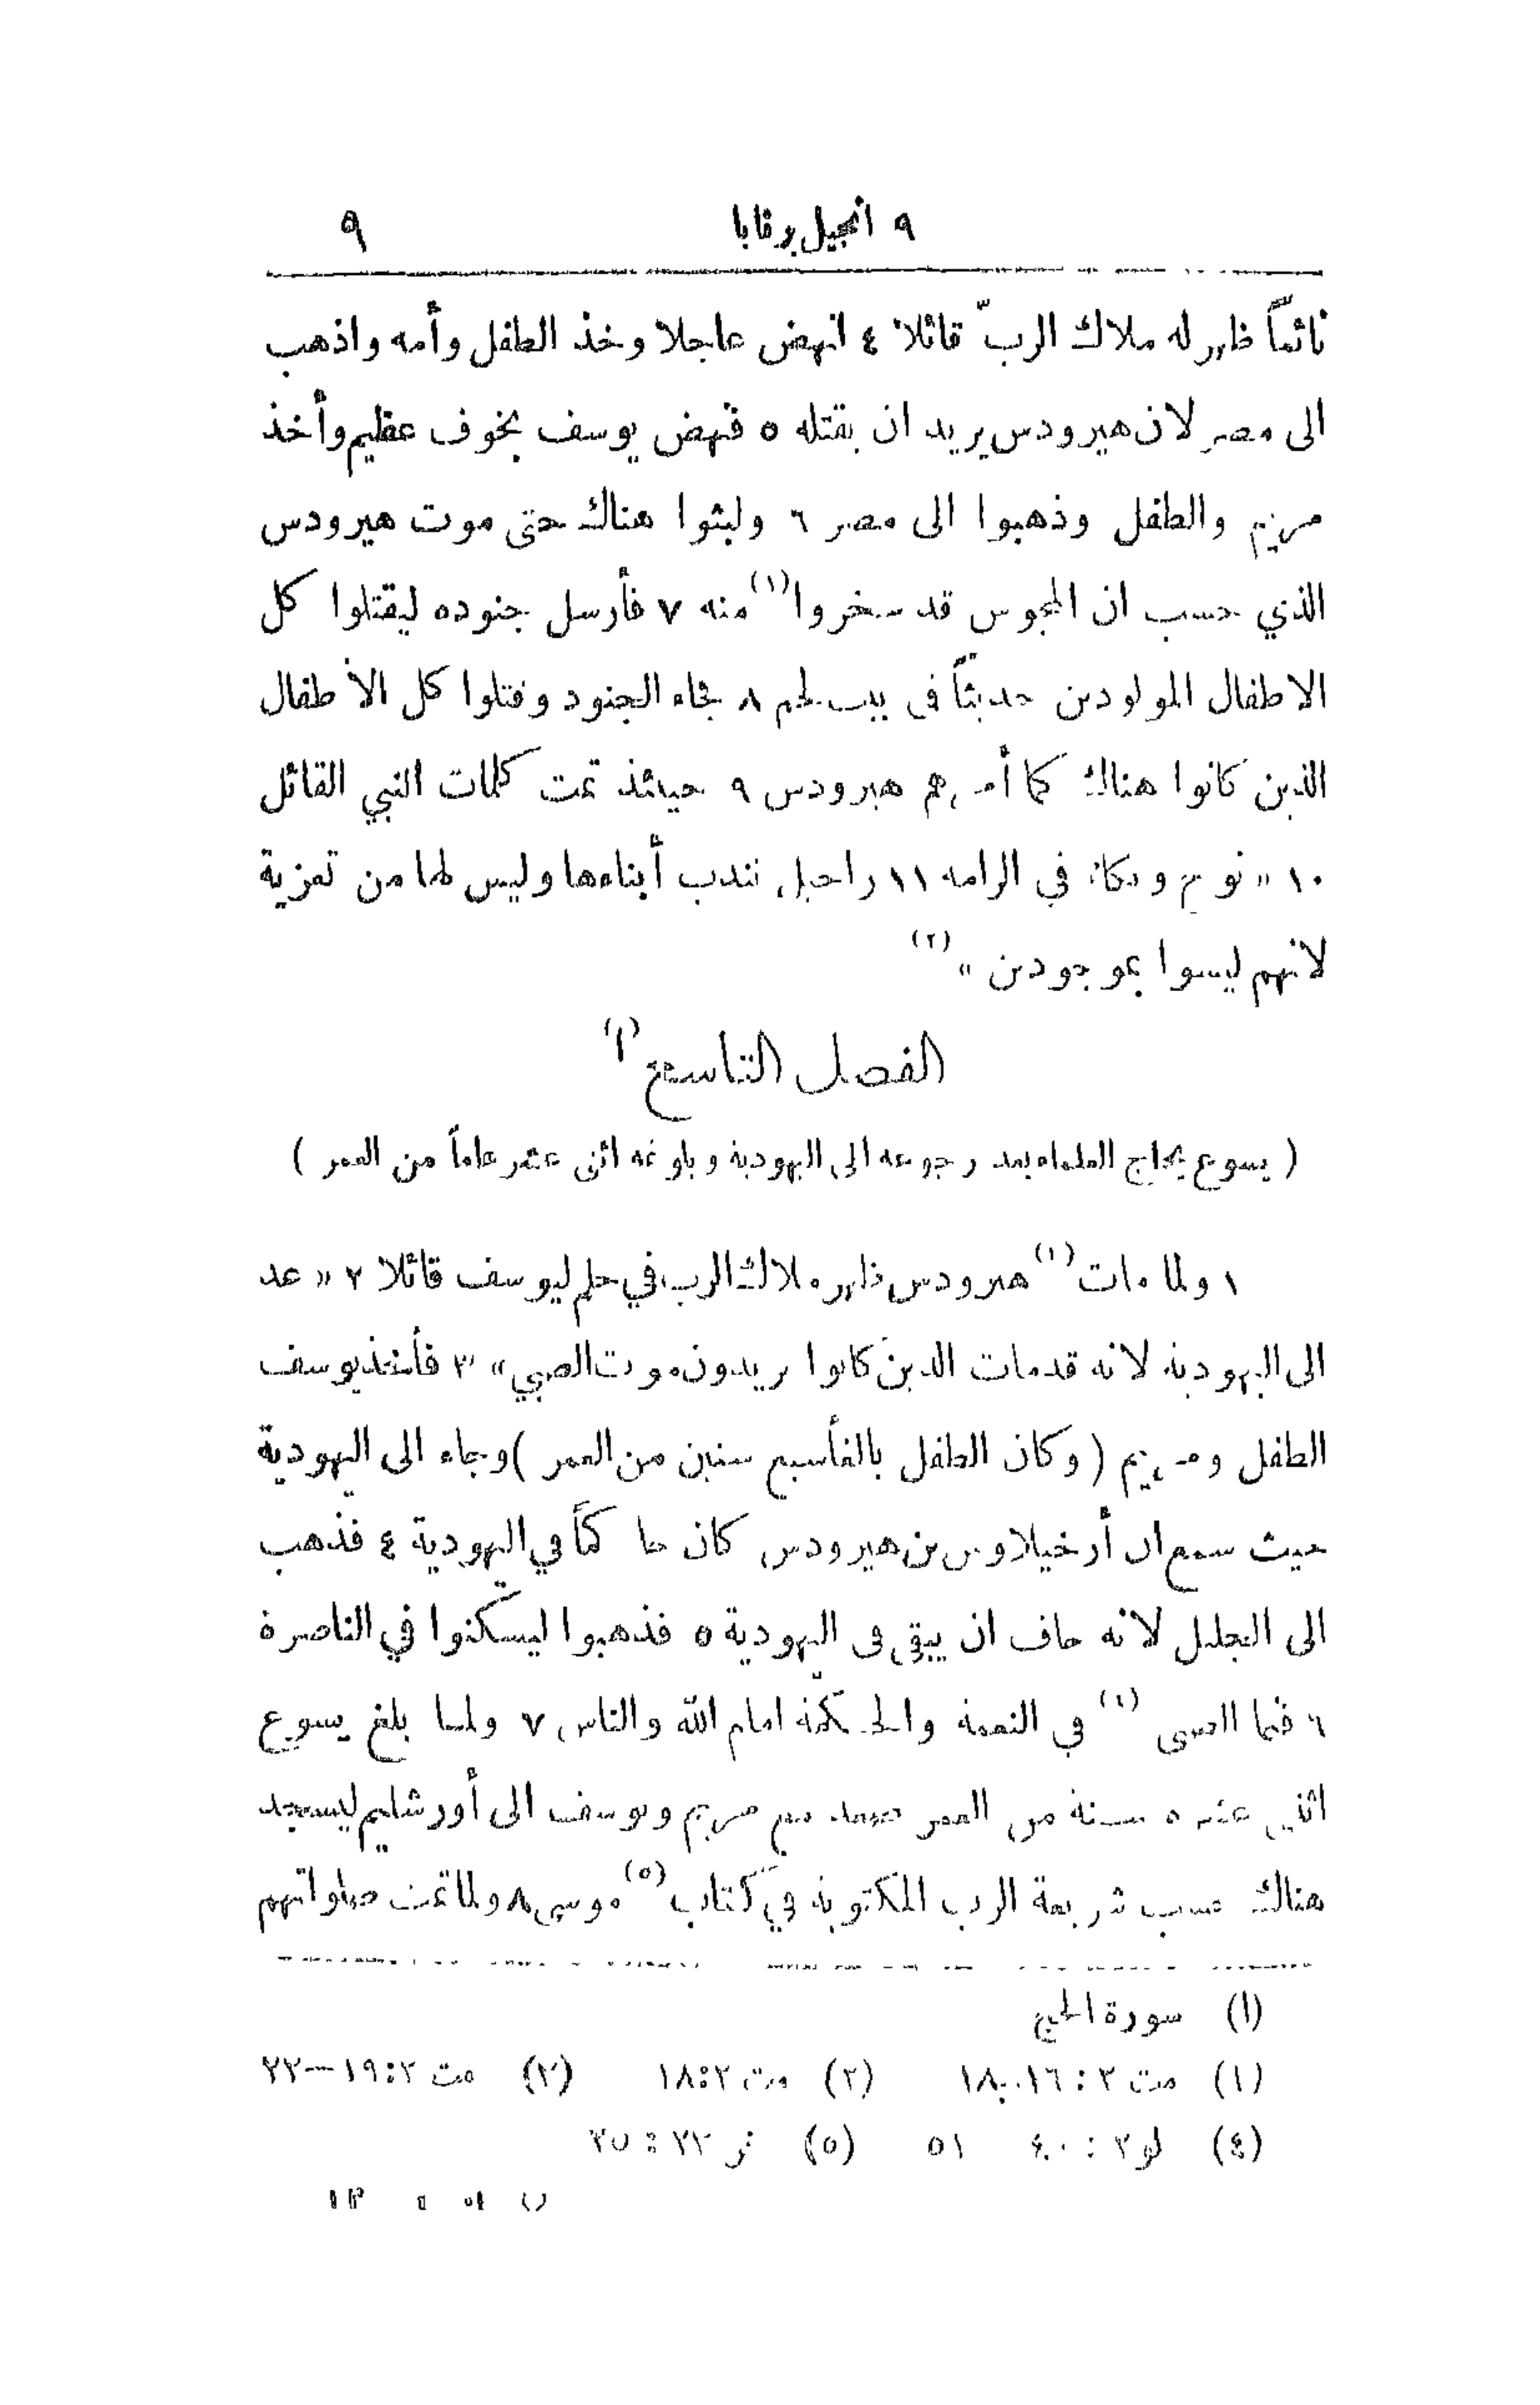 ٩ انجيل برنابا ٩
نائماً ظهر له ملاك الربّ قائلا ٤ انهض عاجلا وخذ الطفل وأمه واذهب
الى مصر لان هيرودس يريد ان يقتله ٥ فنهض يوسف بخوف عظيم وأخذ
مريم والطفل وذهبوا الى مصر ٦ ولبثوا هناك حتى موت هيرودس
الذي حسب ان المجوس قد سخروا (١) منه ٧ فأرسل جنوده ليقتلوا كل
الاطفال المولودين حديثاً في بيت لحم ٨ فجاء الجنود وقتلوا كل الأطفال
الذين كانوا هناك كما أمرهم هيرودس ٩ حينئذ تمت كلمات النبي القائل
١٠ « نوح وبكاء في الرامه ١١ راحيل تندب أبناءها وليس لها من تعزية
لانهم ليسوا بموجودين » (٢)
الفصل التاسع (ا)
( يسوع يحاج العلماء بعد رجوعه الى اليهودية وبلوغه اثنى عشر عاماً من العمر )
١ ولما مات (١) هيرودس ظهر ملاك الرب في حلم ليوسف قائلا ٢ « عد
الى اليهودية لانه قد مات الذين كانوا يريدون موت الصبي » ٣ فأخذ يوسف
الطفل ومريم ( وكان الطفل بالغاً سبع سنين من العمر ) وجاء الى اليهودية
حيث سمع ان أرخيلاوس بن هيرودس كان حاكماً في اليهودية ٤ فذهب
الى الجليل لانه خاف ان يبقى في اليهودية ٥ فذهبوا ليسكنوا في الناصرة
٦ فنما الصبي (٤) في النعمة والحكمة امام الله والناس ٧ ولما بلغ يسوع
اثنتي عشرة سنة من العمر صعد مع مريم ويوسف الى أورشليم ليسجد
هناك حسب شريعة الرب المكتوبة في كتاب (٥) موسى ٨ ولما تمت صلواتهم
(ا) سورة الحج
(١) مت ٢ : ١٦ـ١٨ (٢) مت ٢:١٨ (٣) مت ٢:١٩—٢٢
(٤) لو ٢ : ٤٠ ٥١ (٥)